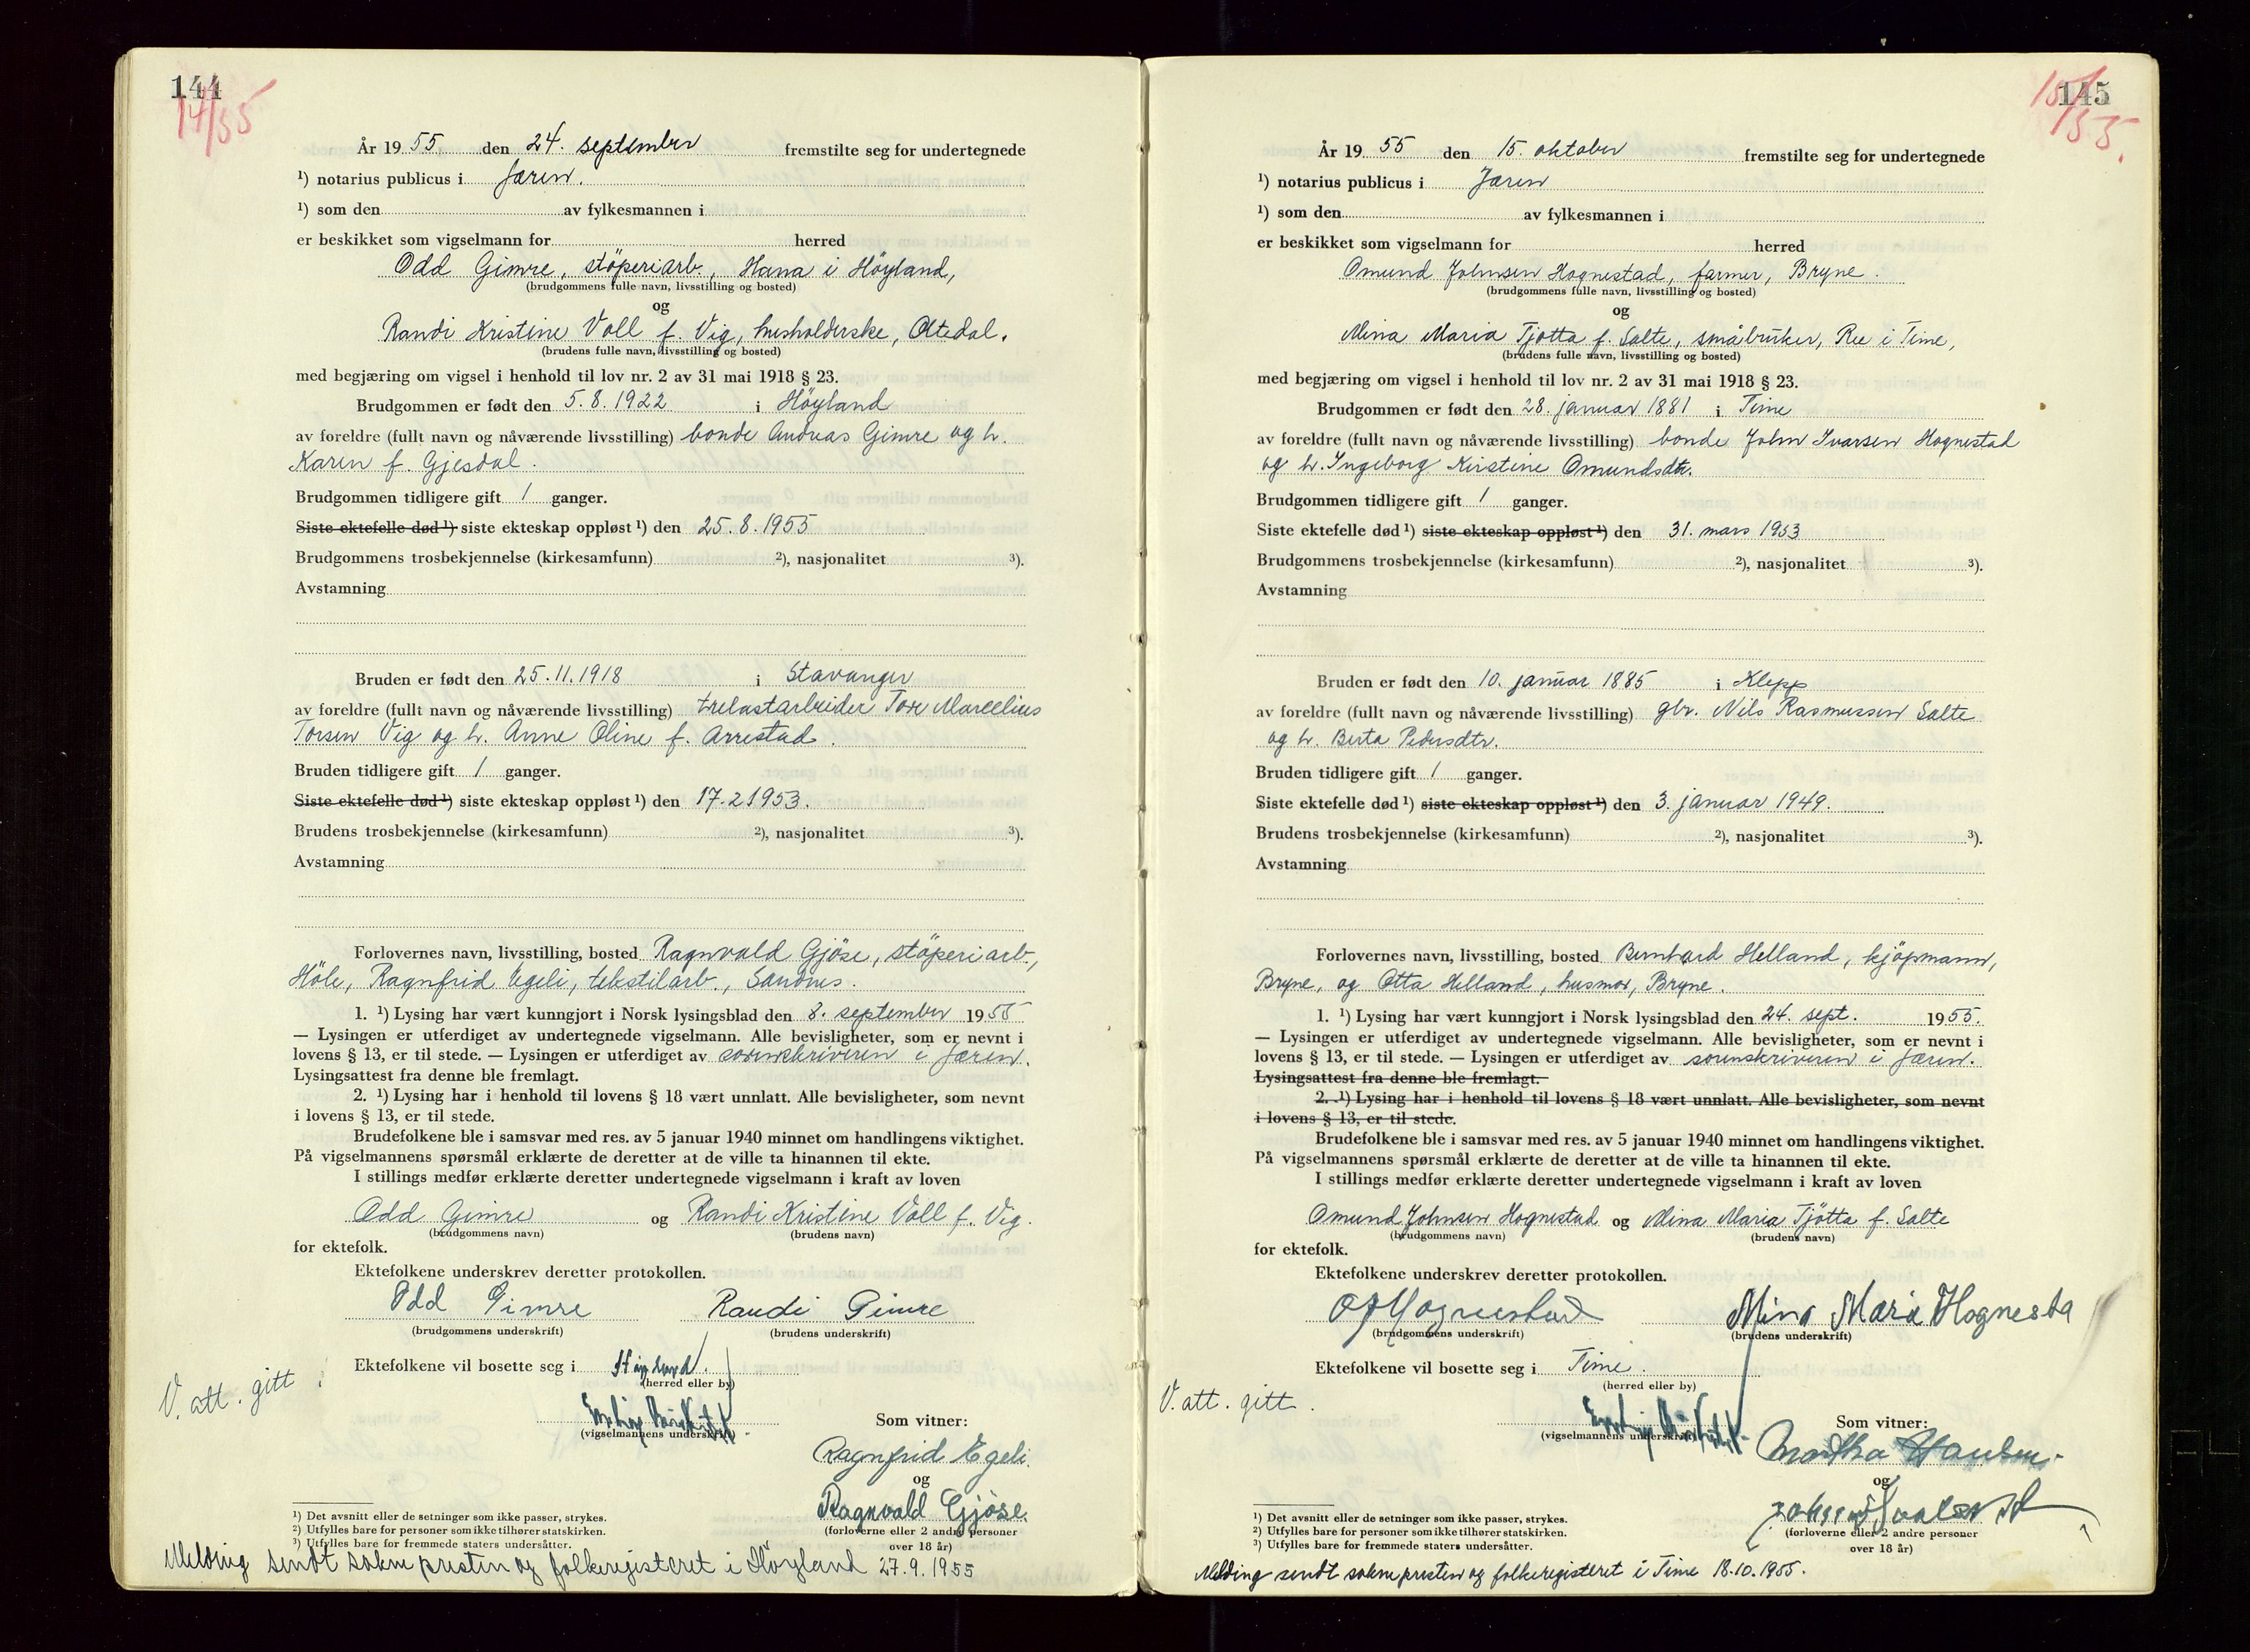 144
14/55
År 19 55 den 24. september fremstilte seg for undertegnede
¹) notarius publicus i Jæren.
¹) som den av fylkesmannen i
er beskikket som vigselmann for herred
Odd Gimre, støperiarb., Hana i Höyland,
(brudgommens fulle navn, livsstilling og bosted)
og
Randi Kristine Voll f. Vig, husholderske, Oltedal.
(brudens fulle navn, livsstilling og bosted)
med begjæring om vigsel i henhold til lov nr. 2 av 31 mai 1918 § 23.
Brudgommen er født den 5.8.1922 i Höyland
av foreldre (fullt navn og nåværende livsstilling) bonde Andreas Gimre og h.
Karen f. Gjesdal.
Brudgommen tidligere gift 1 ganger.
Siste ektefelle død ¹) siste ekteskap oppløst ¹) den 25.8.1955
Brudgommens trosbekjennelse (kirkesamfunn) ²), nasjonalitet ³).
Avstamning
Bruden er født den 25.11.1918 i Stavanger
av foreldre (fullt navn og nåværende livsstilling) trelastarbeider Tore Marcelius
Torsen Vig og h. Anne Oline f. Arrestad.
Bruden tidligere gift 1 ganger.
Siste ektefelle død ¹) siste ekteskap oppløst ¹) den 17.2 1953.
Brudens trosbekjennelse (kirkesamfunn) ²), nasjonalitet ³).
Avstamning
Forlovernes navn, livsstilling, bosted Ragnvald Gjöse, stöperiarb.,
Höle, Ragnfrid Egeli, tekstilarb., Sandnes.
1. ¹) Lysing har vært kunngjort i Norsk lysingsblad den 8. september 1955
— Lysingen er utferdiget av undertegnede vigselmann. Alle bevisligheter, som er nevnt i
lovens § 13, er til stede. — Lysingen er utferdiget av sorenskriveren i Jæren.
Lysingsattest fra denne ble fremlagt.
2. ¹) Lysing har i henhold til lovens § 18 vært unnlatt. Alle bevisligheter, som nevnt
i lovens § 13, er til stede.
Brudefolkene ble i samsvar med res. av 5 januar 1940 minnet om handlingens viktighet.
På vigselmannens spørsmål erklærte de deretter at de ville ta hinannen til ekte.
I stillings medfør erklærte deretter undertegnede vigselmann i kraft av loven
Odd Gimre og Randi Kristine Voll f. Vig.
(brudgommens navn) (brudens navn)
for ektefolk.
Ektefolkene underskrev deretter protokollen.
Odd Gimre Randi Gimre
(brudgommens underskrift) (brudens underskrift)
Ektefolkene vil bosette seg i Höyland.
(herred eller by)
V. att. gitt
(vigselmannens underskrift)
Som vitner:
Ragnfrid Egeli.
og
Ragnvald Gjöse.
(forloverne eller 2 andre personer
over 18 år)
¹) Det avsnitt eller de setninger som ikke passer, strykes.
²) Utfylles bare for personer som ikke tilhører statskirken.
³) Utfylles bare for fremmede staters undersåtter.
Melding sendt soknepresten og folkeregisteret i Höyland 27.9.1955
145
15/55.
År 19 55 den 15. oktober fremstilte seg for undertegnede
¹) notarius publicus i Jæren
¹) som den av fylkesmannen i
er beskikket som vigselmann for herred
Omund Johnsen Hognestad, farmer, Bryne.
(brudgommens fulle navn, livsstilling og bosted)
og
Mina Maria Tjøtta f. Salte, småbruker, Ree i Time,
(brudens fulle navn, livsstilling og bosted)
med begjæring om vigsel i henhold til lov nr. 2 av 31 mai 1918 § 23.
Brudgommen er født den 28. januar 1881 i Time
av foreldre (fullt navn og nåværende livsstilling) bonde John Ivarsen Hognestad
og h. Ingeborg Kirstine Omundsdtr.
Brudgommen tidligere gift 1 ganger.
Siste ektefelle død ¹) siste ekteskap oppløst ¹) den 31. mars 1953
Brudgommens trosbekjennelse (kirkesamfunn) ²), nasjonalitet ³).
Avstamning
Bruden er født den 10. januar 1885 i Klepp
av foreldre (fullt navn og nåværende livsstilling) gbr. Nils Rasmussen Salte
og h. Berta Pedersdtr.
Bruden tidligere gift 1 ganger.
Siste ektefelle død ¹) siste ekteskap oppløst ¹) den 3. januar 1949.
Brudens trosbekjennelse (kirkesamfunn) ²), nasjonalitet ³).
Avstamning
Forlovernes navn, livsstilling, bosted Bernhard Helland, kjöpmann,
Bryne, og Otta Helland, husmor, Bryne.
1. ¹) Lysing har vært kunngjort i Norsk lysingsblad den 24. sept. 1955.
— Lysingen er utferdiget av undertegnede vigselmann. Alle bevisligheter, som er nevnt i
lovens § 13, er til stede. — Lysingen er utferdiget av sorenskriveren i Jæren.
Lysingsattest fra denne ble fremlagt.
2. ¹) Lysing har i henhold til lovens § 18 vært unnlatt. Alle bevisligheter, som nevnt
i lovens § 13, er til stede.
Brudefolkene ble i samsvar med res. av 5 januar 1940 minnet om handlingens viktighet.
På vigselmannens spørsmål erklærte de deretter at de ville ta hinannen til ekte.
I stillings medfør erklærte deretter undertegnede vigselmann i kraft av loven
Omund Johnsen Hognestad og Mina Maria Tjötta f. Salte
(brudgommens navn) (brudens navn)
for ektefolk.
Ektefolkene underskrev deretter protokollen.
O J Hognestad Mina Maria Hognesta
(brudgommens underskrift) (brudens underskrift)
Ektefolkene vil bosette seg i Time.
(herred eller by)
V. att. gitt.
(vigselmannens underskrift)
Som vitner:
Martha
og
(forloverne eller 2 andre personer
over 18 år)
¹) Det avsnitt eller de setninger som ikke passer, strykes.
²) Utfylles bare for personer som ikke tilhører statskirken.
³) Utfylles bare for fremmede staters undersåtter.
Melding sendt soknepresten og folkeregisteret i Time 18.10.1955.